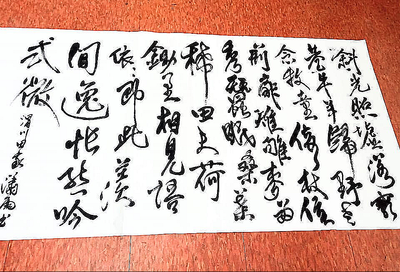 斜光照墟落窮
巷牛羊歸野老
念牧童倚杖候
荊扉雉雊麥苗
秀蠶眠桑葉
稀田夫荷
鋤至相見語
依依即此羨
閒逸悵然吟
式微
渭川田家 瀟雨書